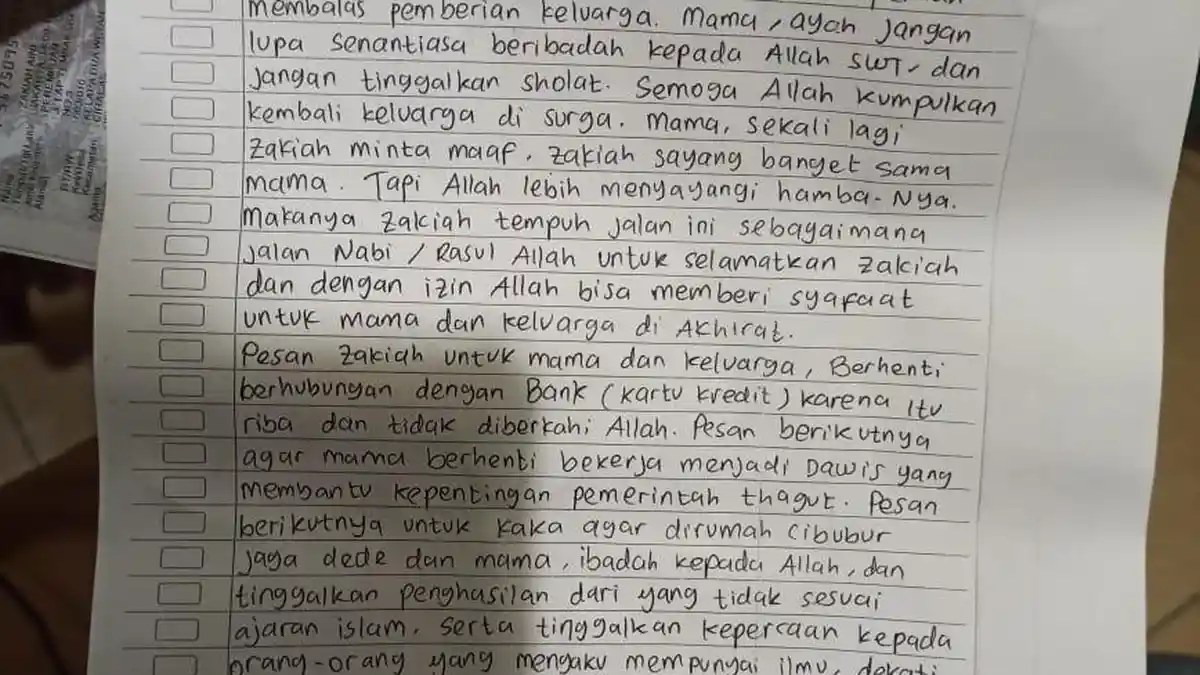 membalas pemberian keluarga. Mama, ayah jangan
lupa senantiasa beribadah kepada Allah SWT, dan
jangan tinggalkan sholat. Semoga Allah kumpulkan
kembali keluarga di surga. Mama, sekali lagi
Zakiah minta maaf. Zakiah sayang banget sama
mama. Tapi Allah lebih menyayangi hamba-Nya.
Makanya Zakiah tempuh jalan ini sebagaimana
jalan Nabi / Rasul Allah untuk selamatkan Zakiah
dan dengan izin Allah bisa memberi syafaat
untuk mama dan keluarga di Akhirat.
Pesan Zakiah untuk mama dan keluarga, Berhenti
berhubungan dengan Bank (kartu kredit) karena Itu
riba dan tidak diberkahi Allah. Pesan berikutnya
agar mama berhenti bekerja menjadi Dawis yang
membantu kepentingan pemerintah thagut. Pesan
berikutnya untuk kaka agar dirumah cibubur
jaga dede dan mama, ibadah kepada Allah, dan
tinggalkan penghasilan dari yang tidak sesuai
ajaran islam. Serta tinggalkan kepercaan kepada
orang-orang yang mengaku mempunyai ilmu, dekati